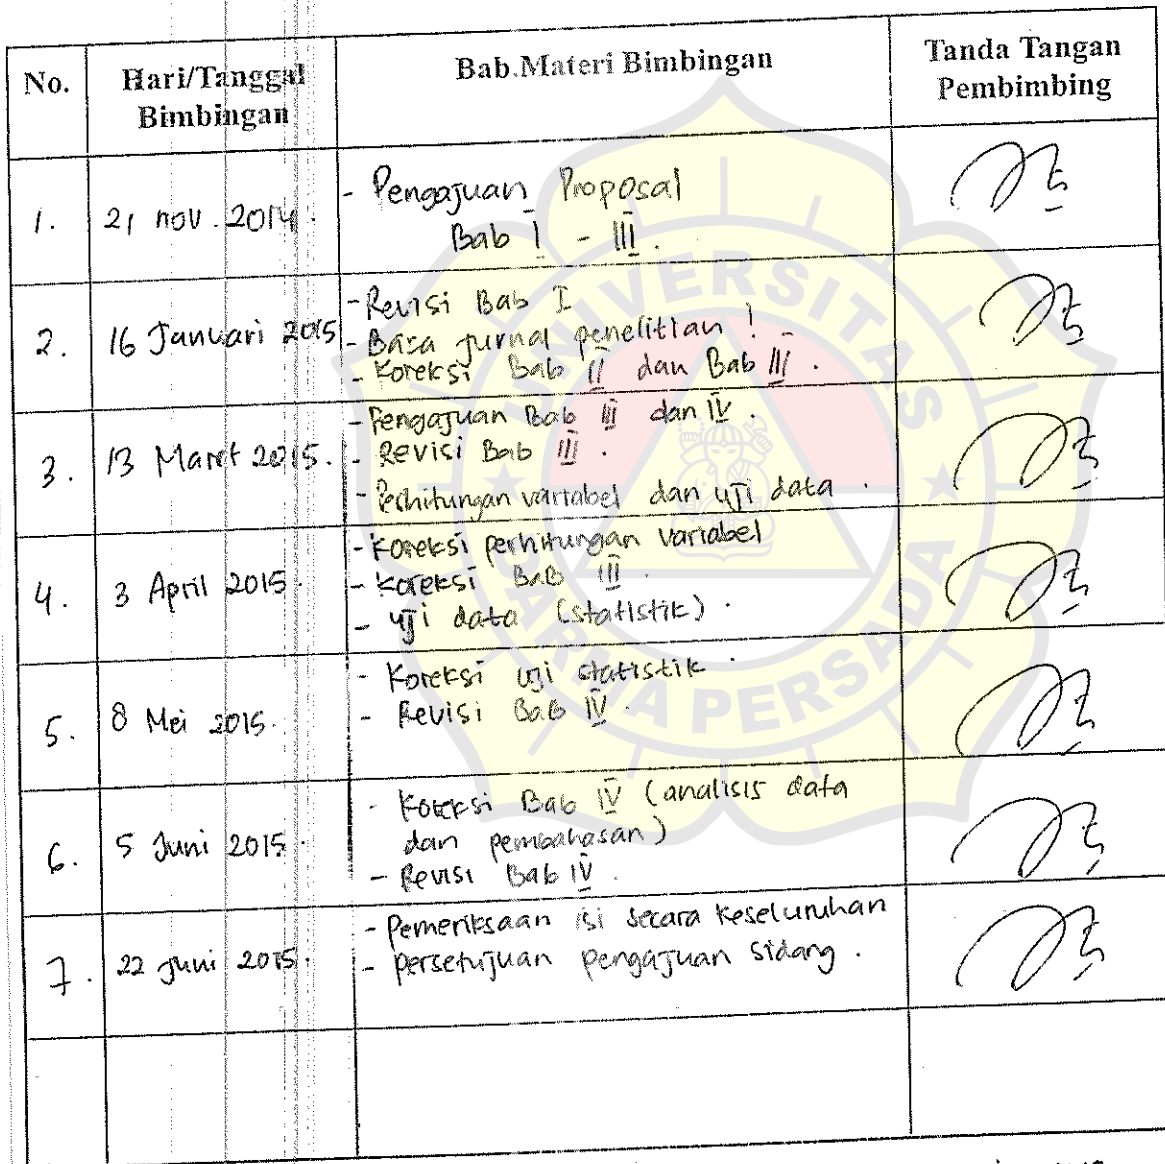 No. Hari/Tanggal Bab.Materi Bimbingan Tanda Tangan
Bimbingan Pembimbing
1. 21 nov. 2014. - Pengajuan Proposal
Bab I - III.
2. 16 Januari 2015 - Revisi Bab I
- Baca jurnal penelitian !
- Koreksi Bab II dan Bab III.
3. 13 Maret 2015. - Pengajuan Bab III dan IV.
- Revisi Bab III.
- Perhitungan variabel dan uji data.
4. 3 April 2015. - Koreksi perhitungan variabel
- Koreksi Bab III.
- uji data (statistik).
5. 8 Mei 2015. - Koreksi uji statistik.
- Revisi Bab IV.
6. 5 Juni 2015. - Koreksi Bab IV (analisis data
dan pembahasan)
- Revisi Bab IV.
7. 22 Juni 2015. - Pemeriksaan isi secara keseluruhan
- persetujuan pengajuan sidang.
UNIVERSITAS
DARMA PERSADA